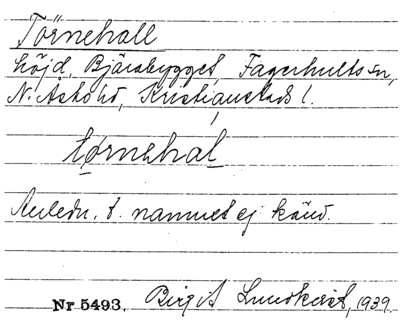 Törnehall
höjd, Bjärabygget, Fagerhults sn,
N. Åsbo hd, Kristianstads l.
tørnehal
Anledn. t. namnet ej känd.
Nr 5493. Birgit Lundkvist, 1939